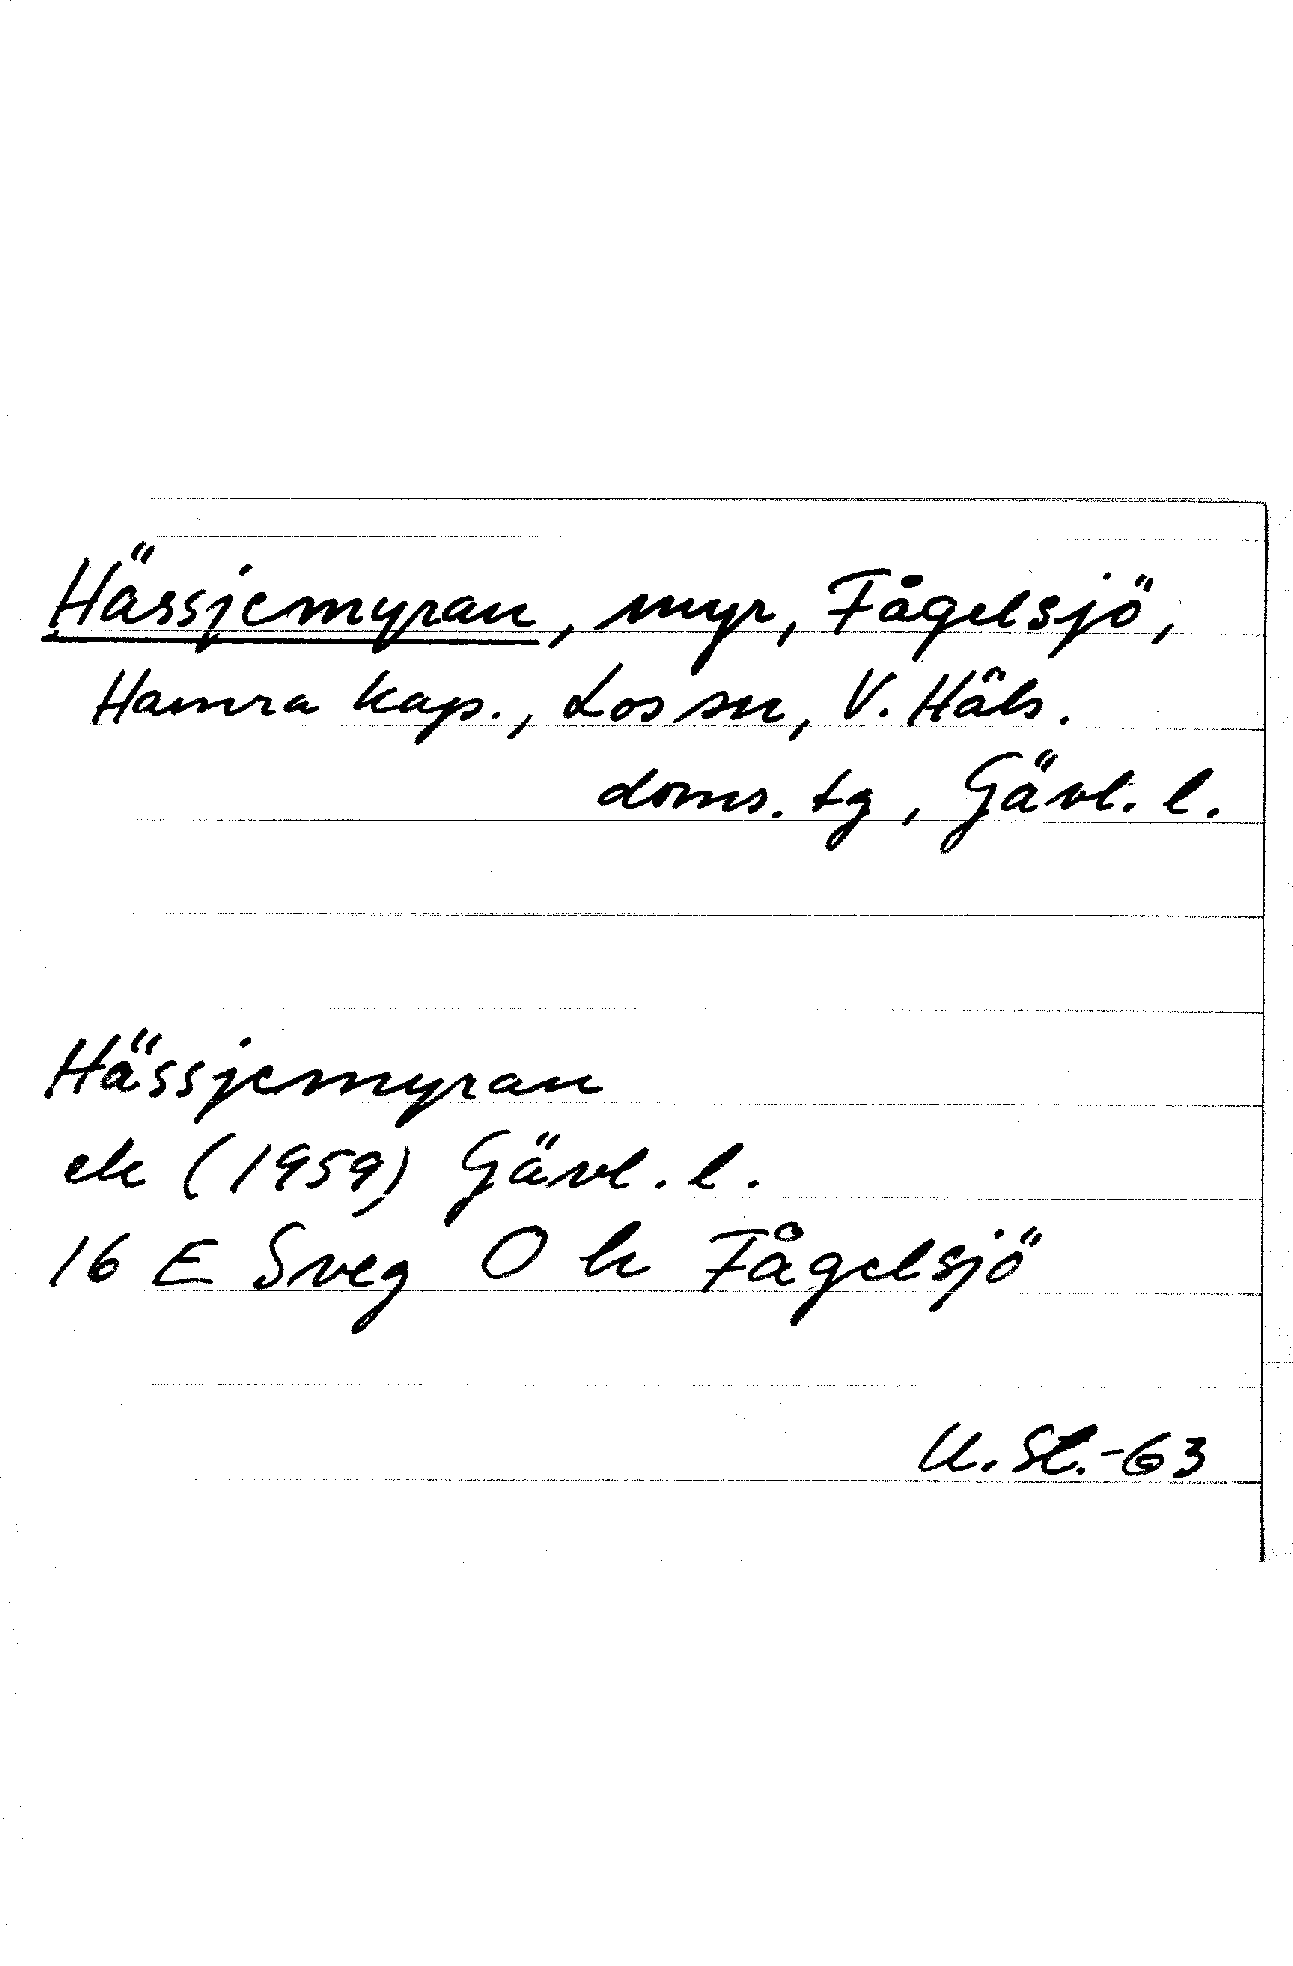 Hässjemyran, myr, Fågelsjö,
Hamra kap., Los sn, V. Häls.
doms. tg, Gävl. l.
Hässjemyran
ek (1959) Gävl. l.
16 E Sveg O k Fågelsjö
U. St.-63